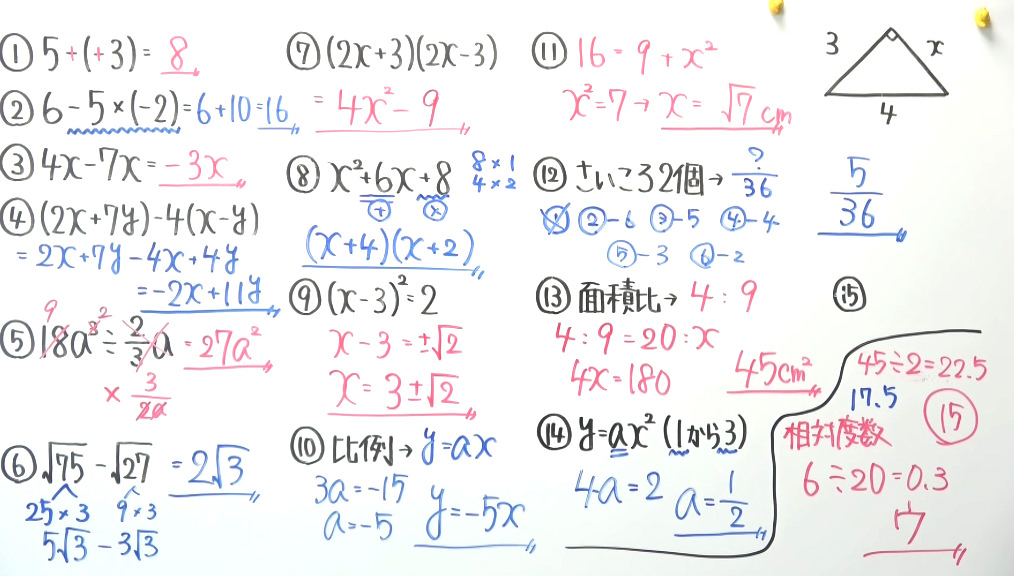 ① 5+(+3)= 8
② 6-5×(-2)=6+10=16
③ 4x-7x=-3x
④ (2x+7y)-4(x-y)
=2x+7y-4x+4y
=-2x+11y
9 2
⑤ 18a³÷2/3a=27a²
×3/2a
⑥ √75-√27 =2√3
25×3 9×3
5√3-3√3
⑦ (2x+3)(2x-3)
=4x²-9
⑧ x²+6x+8
8×1
4×2
+ ×
(x+4)(x+2)
⑨ (x-3)²=2
x-3=±√2
x=3±√2
⑩ 比例→y=ax
3a=-15
a=-5
y=-5x
⑪ 16=9+x²
x²=7→x=√7cm
3 x
4
⑫ さいころ2個→?/36
① ②-6 ③-5 ④-4
⑤-3 ⑥-2
5/36
⑬ 面積比→4:9
4:9=20:x
4x=180
45cm²
⑭ y=ax²(1から3)
4a=2
a=1/2
⑮
45÷2=22.5
17.5
⑮
相対度数
6÷20=0.3
ウ